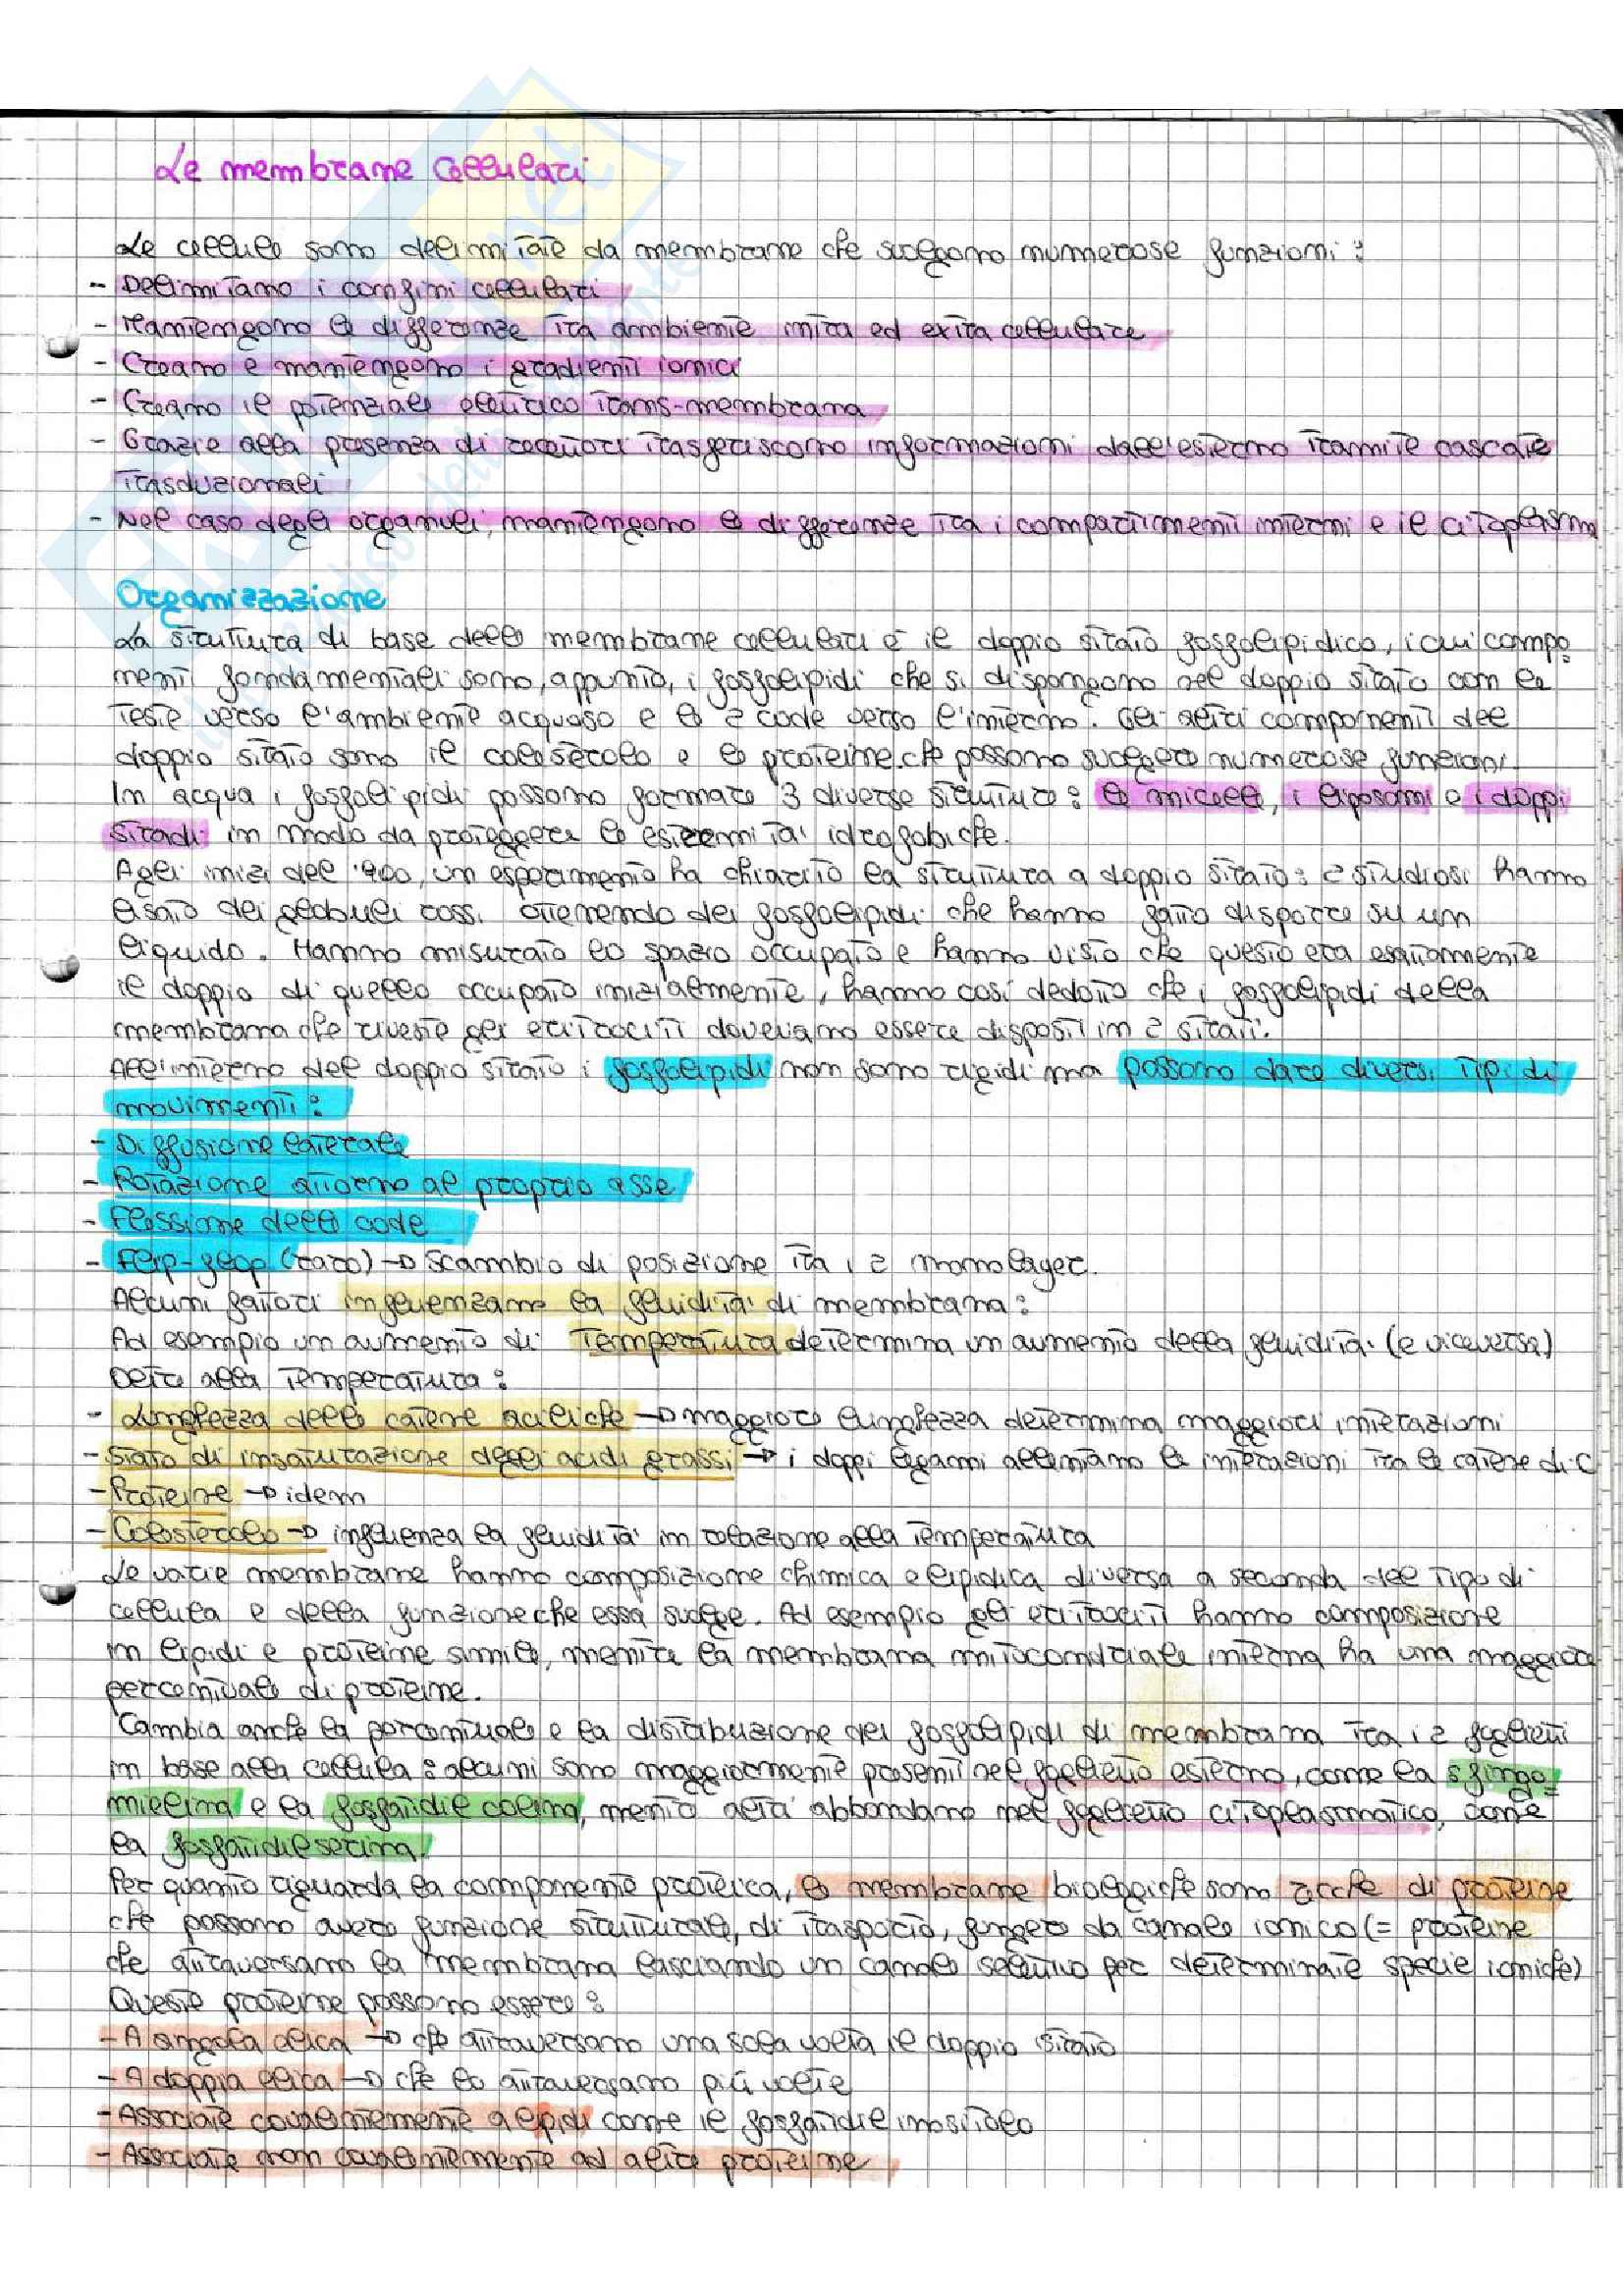 Le membrane cellulari
Le cellule sono delimitate da membrane che svolgono numerose funzioni:
- Delimitano i confini cellulari
- Mantengono le differenze tra ambiente intra ed extra cellulare
- Creano e mantengono i gradienti ionici
- Creano il potenziale elettrico trans-membrana
- Grazie alla presenza di recettori trasferiscono informazioni dall'esterno tramite cascate
trasduzionali
- Nel caso degli organuli, mantengono le differenze tra i compartimenti interni e il citoplasma
Organizzazione
La struttura di base delle membrane cellulari è il doppio strato fosfolipidico, i cui compo
nenti fondamentali sono, appunto, i fosfolipidi che si dispongono nel doppio strato con le
teste verso l'ambiente acquoso e le 2 code verso l'interno. Gli altri componenti del
doppio strato sono il colesterolo e le proteine che possono svolgere numerose funzioni.
In acqua i fosfolipidi possono formare 3 diverse strutture: le micelle, i liposomi e i doppi
stradi in modo da proteggere le estremità idrofobiche.
Agli inizi del '900, un esperimento ha chiarito la struttura a doppio strato: 2 studiosi hanno
lisato dei globuli rossi ottenendo dei fosfolipidi che hanno fatto disporre su un
liquido. Hanno misurato lo spazio occupato e hanno visto che questo era esattamente
il doppio di quello occupato inizialmente, hanno così dedotto che i fosfolipidi della
membrana che riveste gli eritrociti dovevano essere disposti in 2 strati.
All'interno del doppio strato i fosfolipidi non sono rigidi ma possono dare diversi tipi di
movimenti:
- Diffusione laterale
- Rotazione attorno al proprio asse
- Flessione delle code
- Flip-flop (raro) → Scambio di posizione tra i 2 monolayer.
Alcuni fattori influenzano la fluidità di membrana:
Ad esempio un aumento di temperatura determina un aumento della fluidità (e viceversa)
Oltre alla temperatura:
- Lunghezza delle catene aciliche → maggiore lunghezza determina maggiori interazioni
- Stato di insaturazione degli acidi grassi → i doppi legami allentano le interazioni tra le catene di C
- Proteine → idem
- Colesterolo → influenza la fluidità in relazione alla temperatura
Le varie membrane hanno composizione chimica e lipidica diversa a seconda del tipo di
cellula e della funzione che essa svolge. Ad esempio gli eritrociti hanno composizione
in lipidi e proteine simile, mentre la membrana mitocondriale interna ha una maggiore
percentuale di proteine.
Cambia anche la percentuale e la distribuzione dei fosfolipidi di membrana tra i 2 foglietti
in base alla cellula: alcuni sono maggiormente presenti nel foglietto esterno, come la sfingo=
mielina e la fosfatidilcolina, mentre altri abbondano nel foglietto citoplasmatico, come
la fosfatidilserina.
Per quanto riguarda la componente proteica, le membrane biologiche sono ricche di proteine
che possono avere funzione strutturale, di trasporto, fungere da canale ionico (= proteine
che attraversano la membrana lasciando un canale selettivo per determinate specie ioniche)
Queste proteine possono essere:
- A singola elica → che attraversano una sola volta il doppio strato
- A doppia elica → che lo attraversano più volte
- Associate covalentemente a lipidi come il fosfatidil inositolo
- Associate non covalentemente ad altre proteine